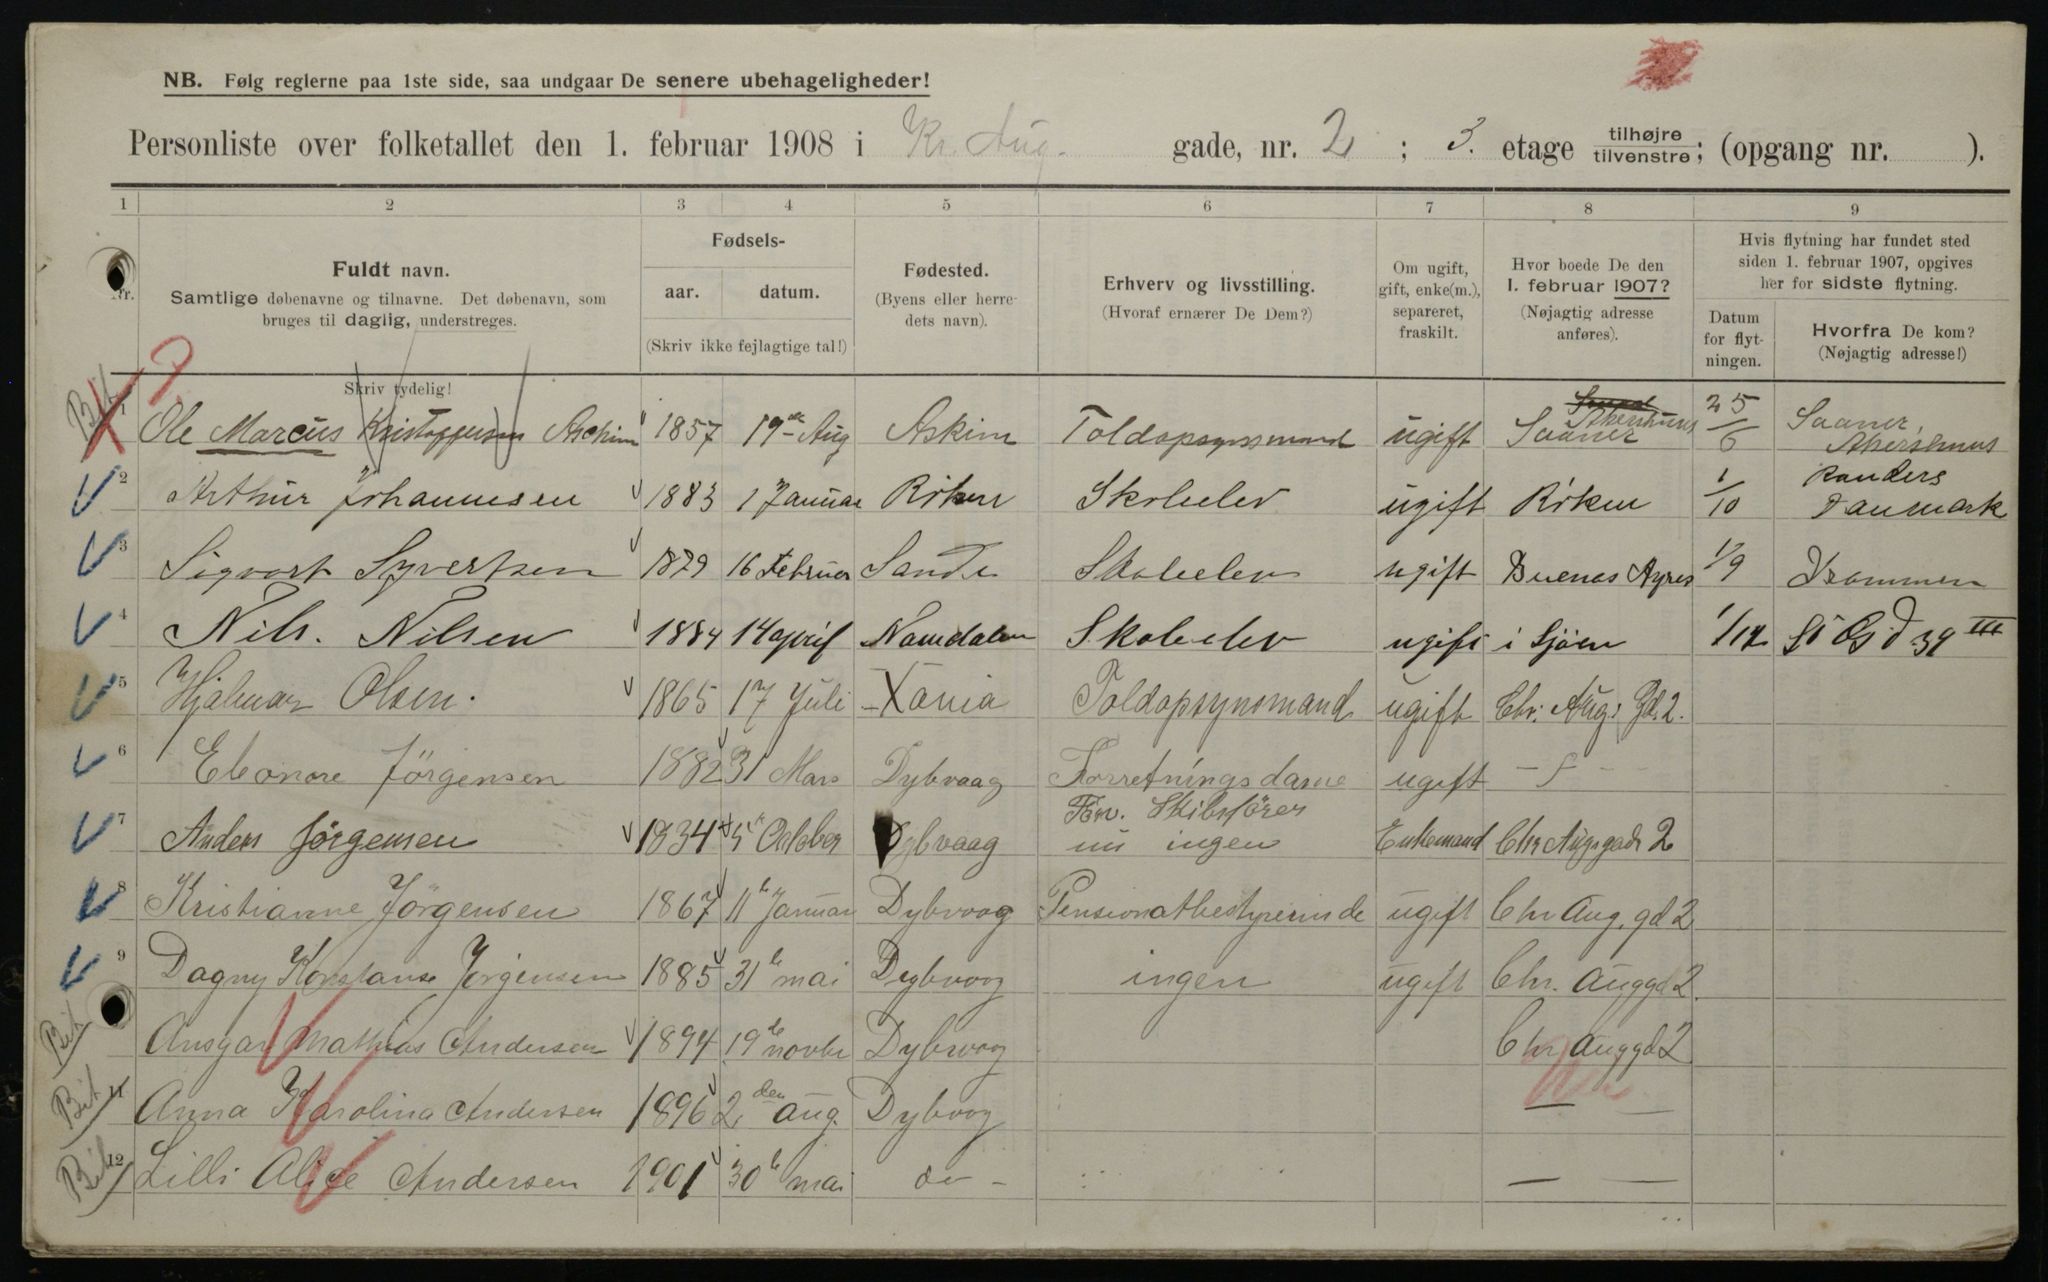 NB. Følg reglerne paa 1ste side, saa undgaar De senere ubehageligheder!
Personliste over folketallet den 1. februar 1908 i Kr. Aug. gade, nr. 2 ; 3. etage tilhøjre tilvenstre; (opgang nr. ).
1 2 3 4 5 6 7 8 9
Nr.
Fuldt navn.
Samtlige døbenavne og tilnavne. Det døbenavn, som
bruges til daglig, understreges.
Skriv tydelig!
Fødsels-
aar. datum.
(Skriv ikke fejlagtige tal!)
Fødested.
(Byens eller herre-
dets navn).
Erhverv og livsstilling.
(Hvoraf ernærer De Dem?)
Om ugift,
gift, enke(m.),
separeret,
fraskilt.
Hvor boede De den
1. februar 1907?
(Nøjagtig adresse
anføres).
Hvis flytning har fundet sted
siden 1. februar 1907, opgives
her for sidste flytning.
Datum
for flyt-
ningen.
Hvorfra De kom?
(Nøjagtig adresse!)
1 Ole Marcus Kristoffersen Askim 1857 19de Aug Askim Toldopsynsmand ugift Saaner Akershus 25/6 Saaner, Akershus
2 Arthur Johannesen 1883 1 Januar Röken Skoleelev ugift Röken 1/10 Randers Danmark
3 Sigvart Syvertsen 1879 16 Februar Sande Skoleelev ugift Buenos Ayres 1/9 Drammen
4 Nils. Nilsen 1884 14 april Namdalen Skoleelev ugift i Sjöen 1/12 39 III
5 Hjalmar Olsen. 1865 17 Juli Xania Toldopsynsmand ugift Chr. Aug. Gd. 2.
6 Eleonore Jörgensen 1882 31 Mars Dybvaag Forretningsdame ugift
7 Anders Jörgensen 1834 5 October Dybvaag Förv. Skibsförer nu ingen Enkemand Chr Augsgade 2
8 Kristianne Jörgensen 1867 11te Januar Dybvaag Pensionatbestyrerinde ugift Chr Aug. gd 2
9 Dagny Konstanse Jørgensen 1885 31te mai Dybvaag ingen ugift Chr. Auggd 2.
Ansgar Mathias Andersen 1894 19de novbr Dybvaag Chr Auggd 2
11 Anna Karolina Andersen 1896 2den aug. Dybvog — —
12 Lilli Alice Andersen 1901 30te mai do - — —